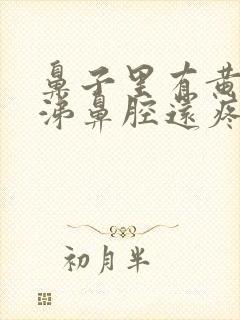 鼻子里有黄
涕鼻腔還疼
初月半